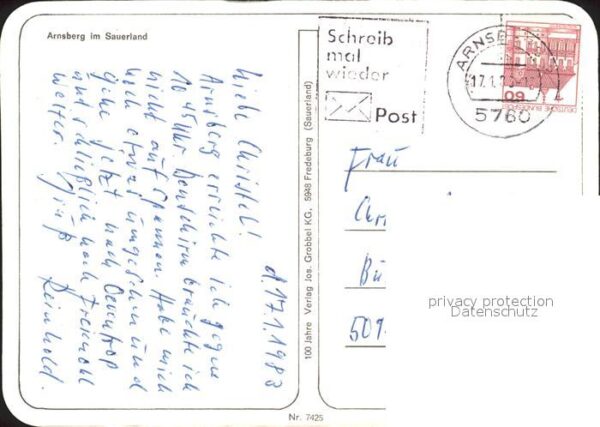 Arnsberg im Sauerland
d. 17.1.1983
Liebe Christel!
Arnsberg erreichte ich gegen
10.45 Uhr. Den Schirm brauchte ich
nicht aufspannen. Habe mich
hier etwas umgesehen und
gehe jetzt nach Oeventrop
und schließlich noch Freienohl
weiter. Gruß
Reinhold.
100 Jahre Verlag Jos. Grobbel KG, 5948 Fredeburg (Sauerland)
Nr. 7425
Schreib
mal
wieder
Post
ARNSBE
17.1.83
5760
60
DEUTSCHE BUNDESPOST
Frau
Chr
Bü
509
privacy protection
Datenschutz